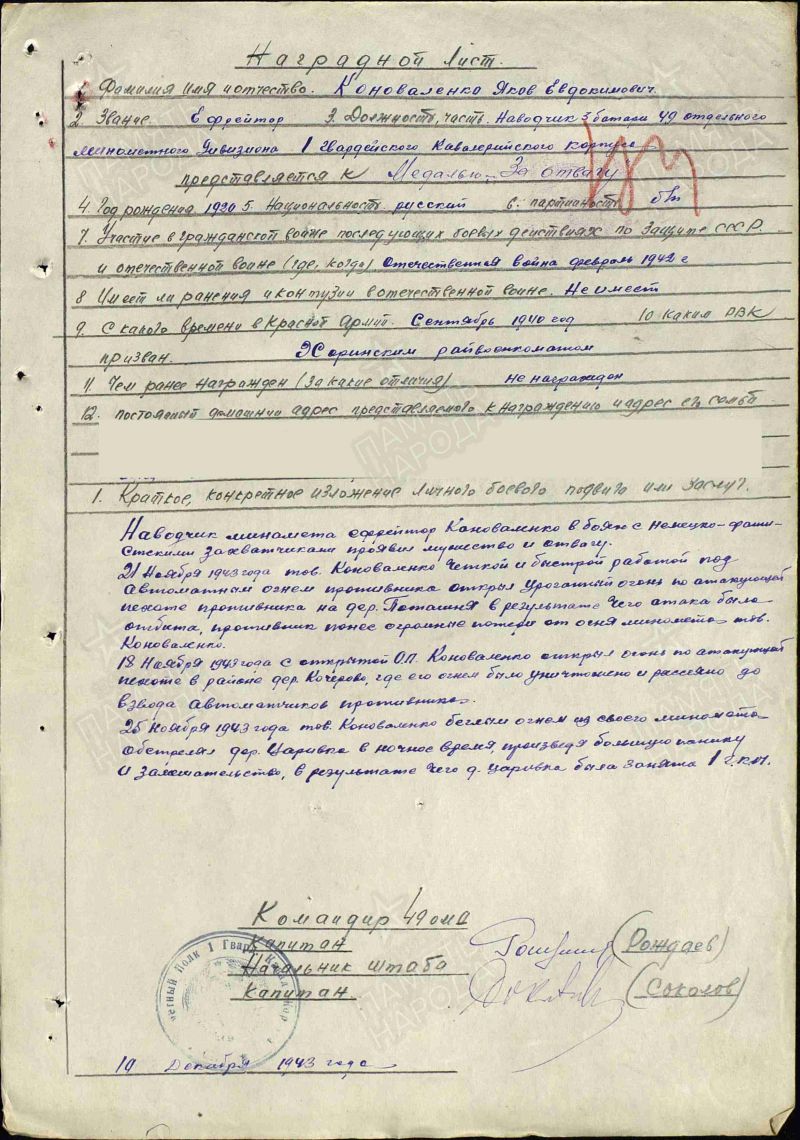 Наградной Лист.
Фамилия имя и отчество. Коноваленко Яков Евдокимович.
2 Звание Ефрейтор 3. Должность, часть. Наводчик 3 батареи 49 отдельного
минометного Дивизиона 1 Гвардейского Кавалерийского Корпуса
представляется к Медалью "За отвагу"
4. Год рождения 1920 5. Национальность русский 6. партийность б/п
7. Участие в гражданской войне последующих боевых действиях по защите СССР.
и отечественной войне (где, когда) Отечественная война февраль 1942 г
8 Имеет ли ранения и контузии в отечественной войне. Не имеет
9. С какого времени в Красной Армии. Сентябрь 1940 год 10 Каким РВК
призван. райвоенкоматом
11. Чем ранее награжден (за какие отличия) Не награжден
12. постоянный домашний адрес представляемого к награждению и адрес его семьи
1. Краткое, конкретное изложение личного боевого подвига или заслуг.
Наводчик миномета ефрейтор Коноваленко в боях с немецко-фаши-
стскими захватчиками проявил мужество и отвагу.
21 Ноября 1943 года тов. Коноваленко четкой и быстрой работой под
автоматным огнем противника открыл ураганный огонь по атакующей
пехоте противника на дер. Поташня в результате чего атака была
отбита, противник понес огромные потери от огня миномета тов.
Коноваленко.
18 Ноября 1943 года с открытой О.П. Коноваленко открыл огонь по атакующей
пехоте в районе дер. Кочерово, где его огнем было уничтожено и рассеяно до
взвода автоматчиков противника.
25 Ноября 1943 года тов. Коноваленко беглым огнем из своего миномета
обстрелял дер. Царивка в ночное время, произведя большую панику
и замешательство, в результате чего д. Царивка была занята 1 г.к.к.
Командир 49 омд
Капитан (Рождаев)
Начальник штаба
Капитан (Соколов)
1 Гвар. Кавал.
19 Декабря 1943 года
ПАМЯТЬ НАРОДА